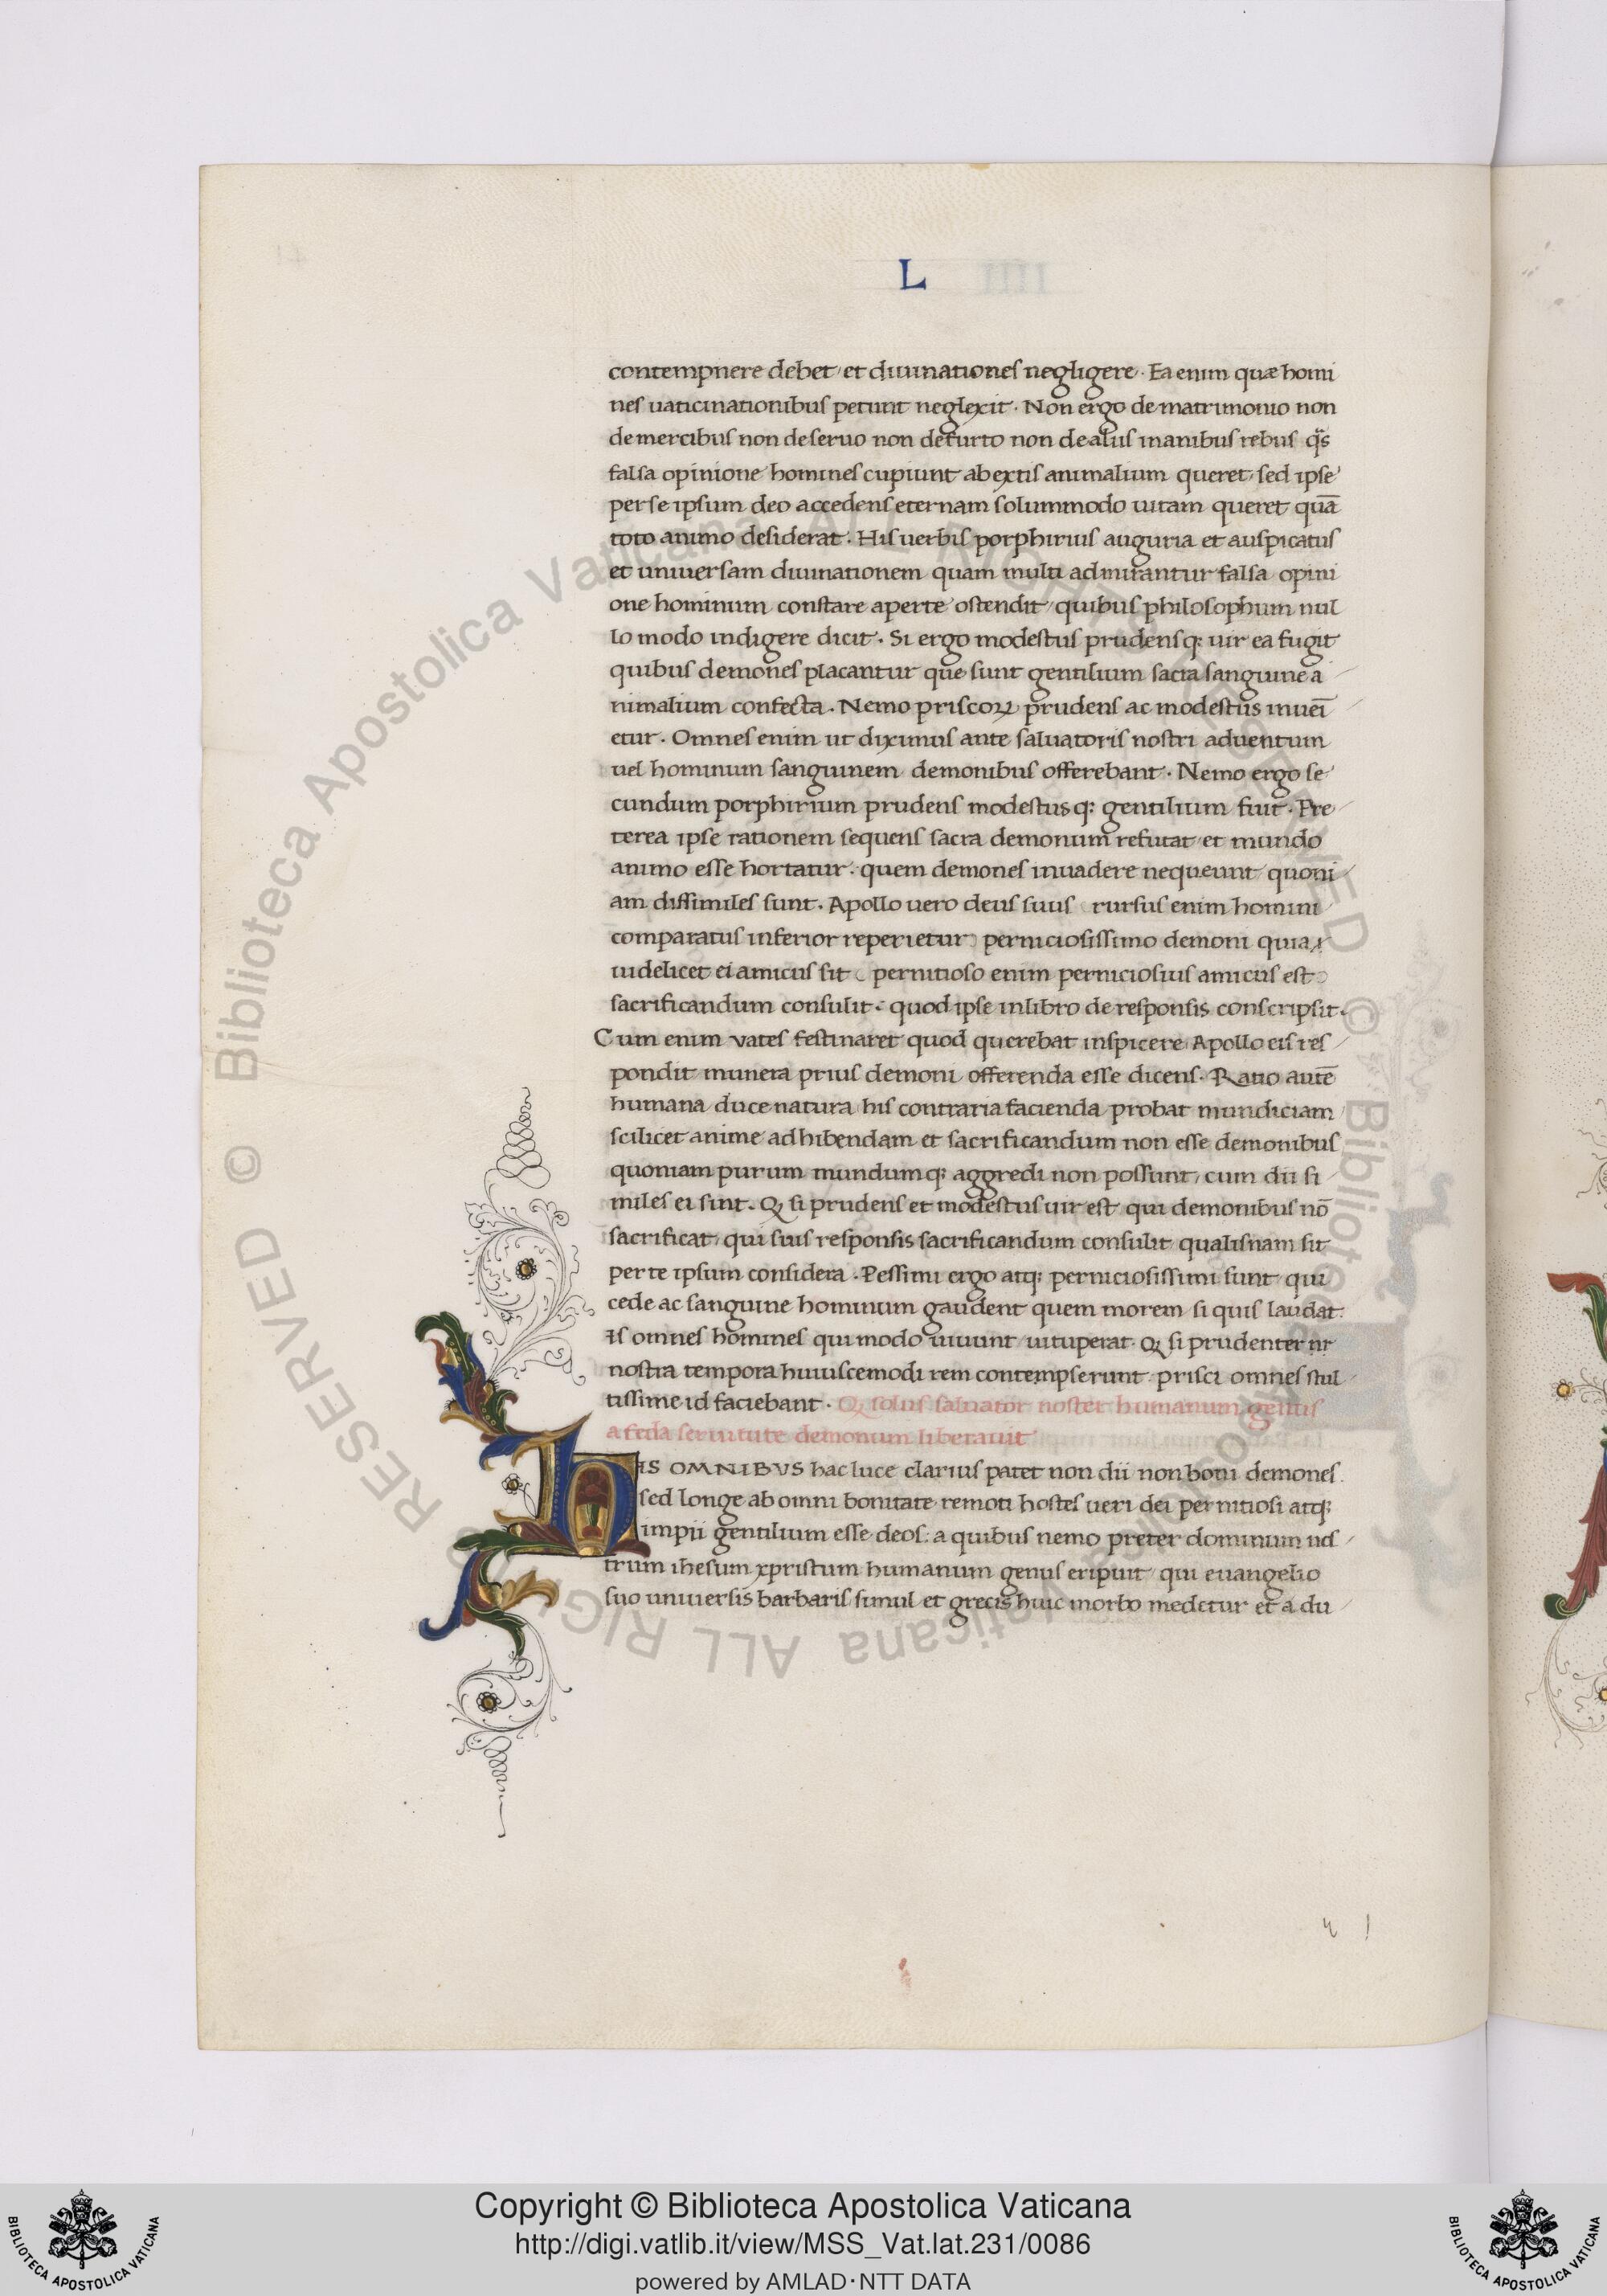 L
contempnere debet et diuinationes negligere. Ea enim quæ homi
nes uaticinationibus petunt neglexit. Non ergo de matrimonio non
de mercibus non de seruo non de furto non de aliis inanibus rebus q̃s
falsa opinione homines cupiunt ab extis animalium queret, sed ipse
per se ipsum deo accedens eternam solummodo uitam queret quā
toto animo desiderat. His uerbis porphirius auguria et auspicatus
et uniuersam diuinationem quam multi admirantur falsa opini
one hominum constare aperte ostendit, quibus philosophum nul
lo modo indigere dicit. Si ergo modestus prudensq; uir ea fugit
quibus demones placantur que sunt gentilium sacra sanguine a
nimalium confecta. Nemo priscoꝝ prudens ac modestus inueī
etur. Omnes enim ut diximus ante saluatoris nostri aduentum
uel hominum sanguinem demonibus offerebant. Nemo ergo se
cundum porphirium prudens modestusq; gentilium fuit. Pre
terea ipse rationem sequens sacra demonum refutat et mundo
animo esse hortatur. quem demones inuadere nequeunt quoni
am dissimiles sunt. Apollo uero deus suus (rursus enim homini
comparatus inferior reperietur) perniciosissimo demoni quia
uidelicet ei amicus sit (pernitioso enim perniciosius amicus est)
sacrificandum consulit. quod ipse in libro de responsis conscripsit.
Cum enim vates festinaret quod querebat inspicere Apollo eis res
pondit munera prius demoni offerenda esse dicens. Ratio autē
humana duce natura his contraria facienda probat mundiciam
scilicet anime adhibendam et sacrificandum non esse demonibus
quoniam purum mundumq; aggredi non possunt, cum dii si
miles ei sint. Ꝙ si prudens et modestus uir est qui demonibus nō
sacrificat, qui suis responsis sacrificandum consulit qualisnam sit
per te ipsum considera. Pessimi ergo atq; perniciosissimi sunt qui
cede ac sanguine hominum gaudent quem morem si quis laudat.
Is omnes homines qui modo uiuunt uituperat. Ꝙ si prudenter
nostra tempora huiuscemodi rem contempserunt prisci omnes stul
tissime id faciebant. Ꝙ solus saluator noster humanum gentis
a feda seruitute demonum liberauit
HIS OMNIBVS hac luce clarius patet non dii non boni demones
sed longe ab omni bonitate remoti hostes ueri dei pernitiosi atq;
impii gentilium esse deos: a quibus nemo preter dominum nos
trum ihesum xpristum humanum genus eripuit, qui euangelio
suo uniuersis barbaris simul et grecis huic morbo medetur et a du
Copyright © Biblioteca Apostolica Vaticana
http://digi.vatlib.it/view/MSS_Vat.lat.231/0086
powered by AMLAD·NTT DATA
BIBLIOTECA APOSTOLICA VATICANA
BIBLIOTECA APOSTOLICA VATICANA
© Biblioteca Apostolica Vaticana ALL RIGHTS RESERVED